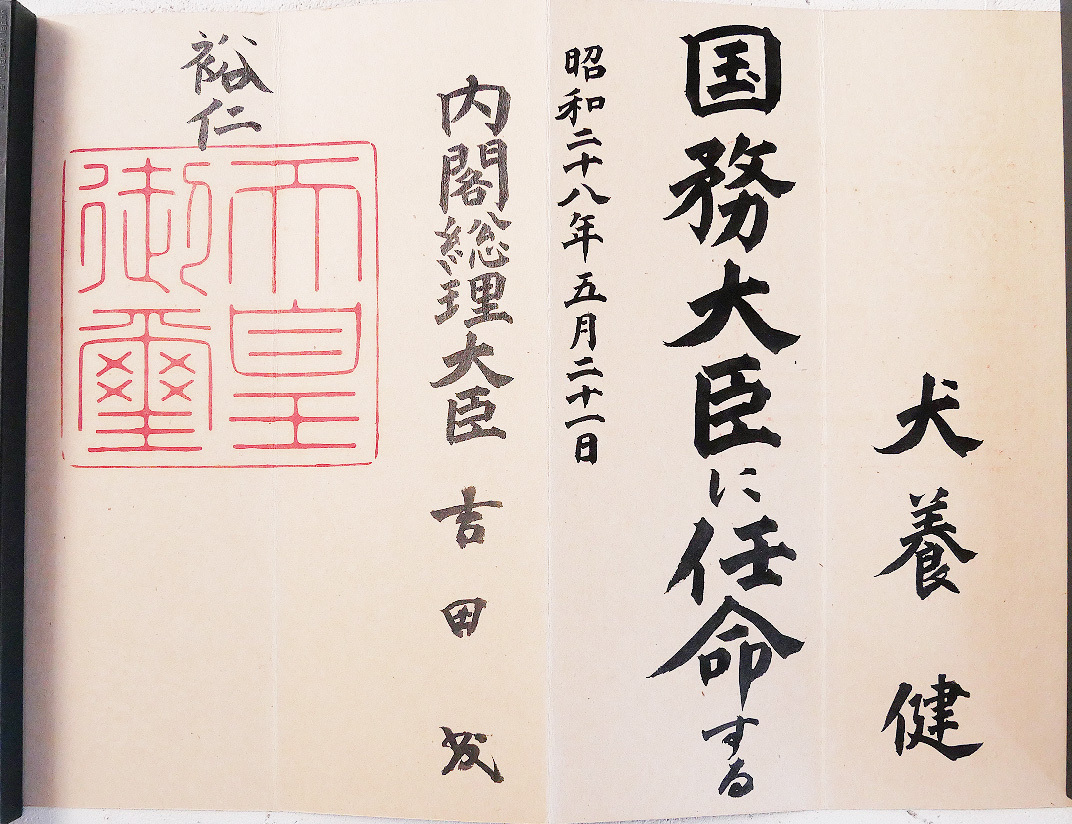 犬養健
国務大臣に任命する
昭和二十八年五月二十一日
内閣総理大臣 吉田茂
裕仁
天皇
御璽